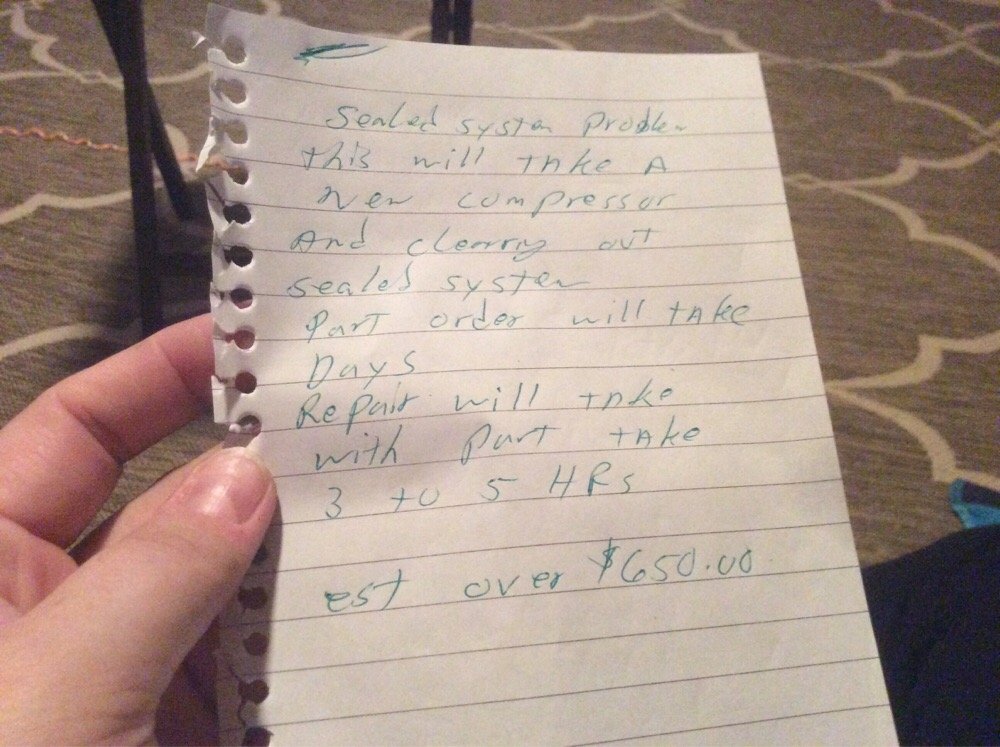 Sealed system problem
this will take A
New compressor
And clearing out
sealed system
Part order will take
Days
Repair will take
with part take
3 to 5 HRs
est over $650.00